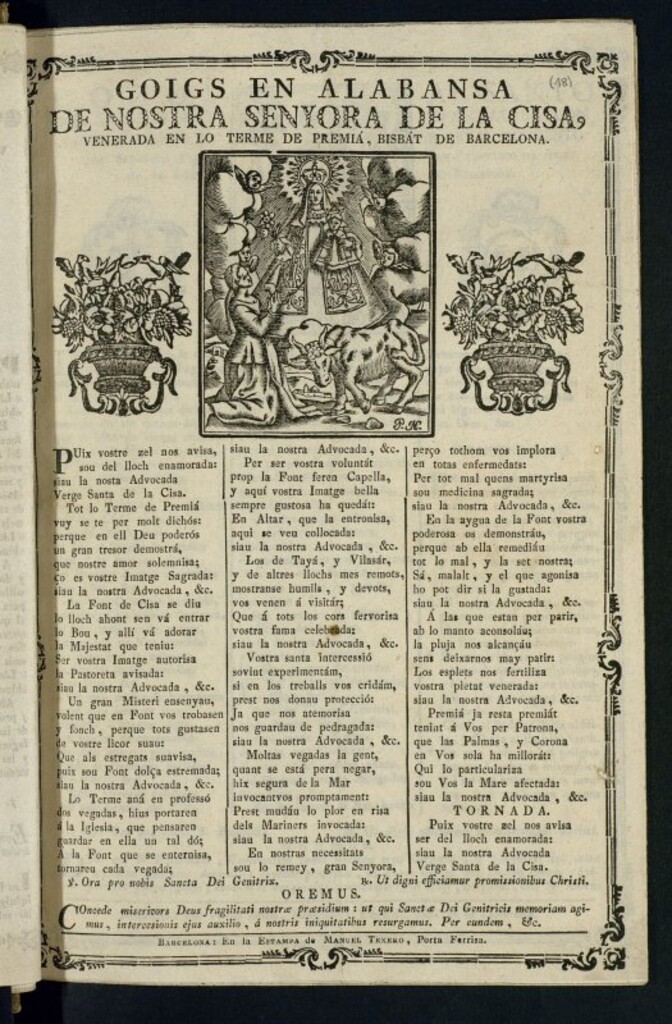 (18)
GOIGS EN ALABANSA
DE NOSTRA SENYORA DE LA CISA,
VENERADA EN LO TERME DE PREMIÁ, BISBÁT DE BARCELONA.
P.N.
PUix vostre zel nos avisa,
sou del lloch enamorada:
siau la nosta Advocada
Verge Santa de la Cisa.
Tot lo Terme de Premiá
vuy se te per molt dichós:
perque en ell Deu poderós
un gran tresor demostrá,
que nostre amor solemnisa;
ço es vostre Imatge Sagrada:
siau la nostra Advocada, &c.
La Font de Cisa se diu
lo lloch ahont sen vá entrar
lo Bou, y allí vá adorar
la Majestat que teniu:
Ser vostra Imatge autorisa
la Pastoreta avisada:
siau la nostra Advocada, &c.
Un gran Misteri ensenyau,
volent que en Font vos trobasen
y fonch, perque tots gustasen
de vostre licor suau:
Que als estregats suavisa,
puix sou Font dolça estremada;
siau la nostra Advocada, &c.
Lo Terme aná en professó
dos vegadas, hius portaren
á la Iglesia, que pensaren
guardar en ella un tal dó;
Á la Font que se enternisa,
tornareu cada vegada;
siau la nostra Advocada, &c.
Per ser vostra voluntát
prop la Font feren Capella,
y aquí vostra Imatge bella
sempre gustosa ha quedát:
En Altar, que la entronisa,
aqui se veu collocada:
siau la nostra Advocada, &c.
Los de Tayá, y Vilasár,
y de altres llochs mes remots,
mostranse humils, y devots,
vos venen á visitár;
Que á tots los cors fervorisa
vostra fama celebrada:
siau la nostra Advocada, &c.
Vostra santa intercessió
sovint experimentám,
si en los treballs vos cridám,
prest nos donau protecció:
Ja que nos atemorisa
nos guardau de pedragada:
siau la nostra Advocada, &c.
Moltas vegadas la gent,
quant se está pera negar,
hix segura de la Mar
invocantvos promptament:
Prest mudáu lo plor en risa
dels Mariners invocada:
siau la nostra Advocada, &c.
En nostras necessitats
sou lo remey, gran Senyora,
perço tothom vos implora
en totas enfermedats:
Per tot mal quens martyrisa
sou medicina sagrada;
siau la nostra Advocada, &c.
En la aygua de la Font vostra
poderosa os demonstráu,
perque ab ella remediáu
tot lo mal, y la set nostra;
Sá, malalt, y el que agonisa
ho pot dir si la gustada:
siau la nostra Advocada, &c.
Á las que estan per parir,
ab lo manto aconsoláu;
la pluja nos alcançáu
sens deixarnos may patir:
Los esplets nos fertiliza
vostra pietat venerada:
siau la nostra Advocada, &c.
Premiá ja resta premiát
tenint á Vos per Patrona,
que las Palmas, y Corona
en Vos sola ha millorát:
Qui lo particulariza
sou Vos la Mare afectada:
siau la nostra Advocada, &c.
TORNADA.
Puix vostre zel nos avisa
ser del lloch enamorada:
siau la nostra Advocada
Verge Santa de la Cisa.
℣. Ora pro nobis Sancta Dei Genitrix. ℟. Ut digni efficiamur promissionibus Christi.
OREMUS.
COncede misericors Deus fragilitati nostræ præsidium: ut qui Sanctæ Dei Genitricis memoriam agi-
mus, intercessionis ejus auxilio, á nostris iniquitatibus resurgamus. Per eundem, &c.
BARCELONA: En la ESTAMPA de MANUEL TEXERO, Porta Ferrisa.